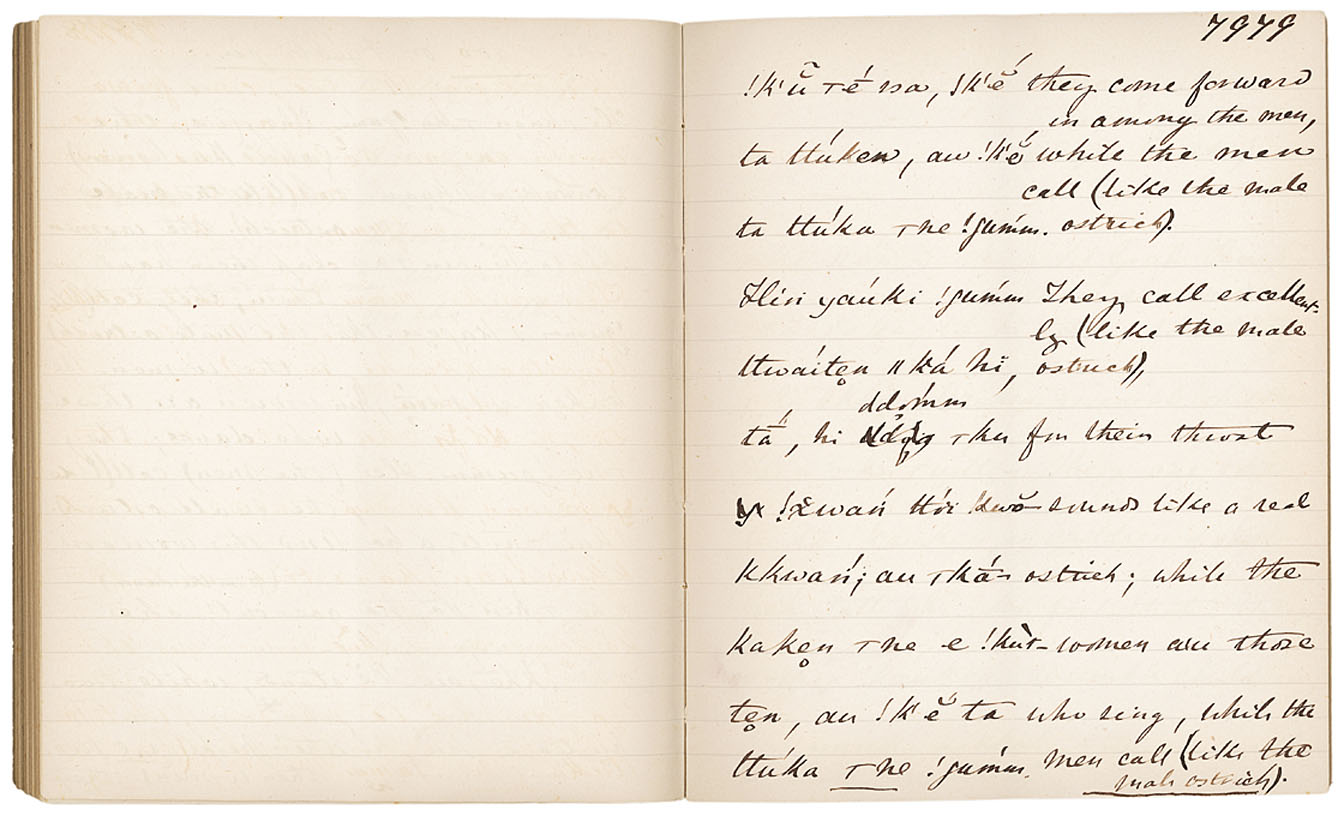 7979
!k'ŭ ⊤é ssa, !k'ĕ́ they come forward
in among the men,
ta ttúken, au !k'ĕ́ while the men
call (like the male
ta ttúka ⊤ne !gumm. ostrich).
Hin yaúki !gumm They call excellent-
ly (like the male
ttwaítẹn ǁká hĭ, ostrich),
ddómm
tā́, hi ⊤ku for their throat
!χwań ttói !kwō- sounds like a real
kkwań; au ⊤kā́- ostrich; while the
kakẹn ⊤ne e !kut- women are those
tẹn, au !k'ĕ́ ta who sing, while the
ttúka ⊤ne !gumm. men call (like the
male ostrich).